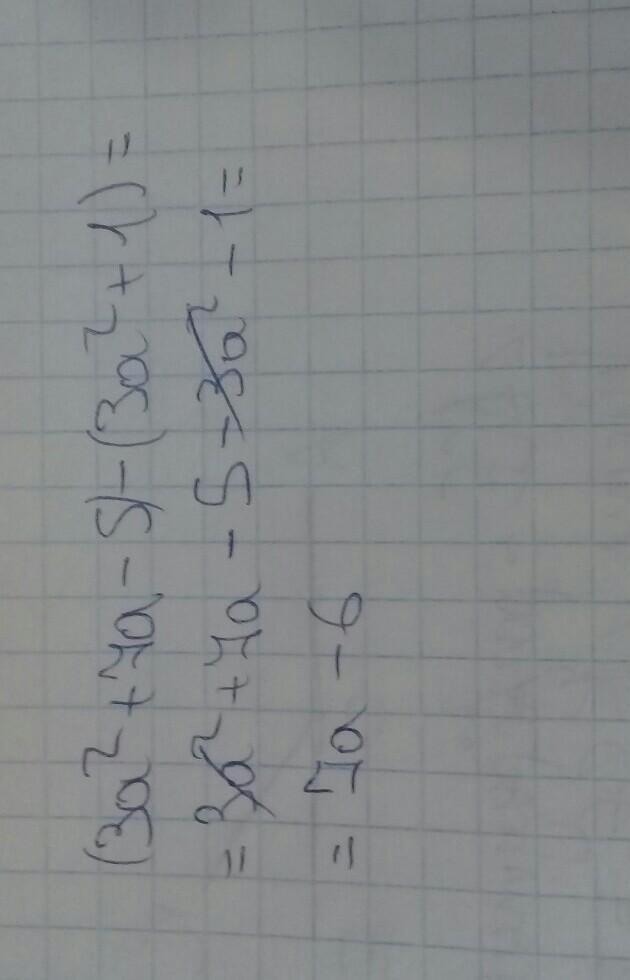 (3a² + 7a - 5) - (3a² + 1) =
= 3a² + 7a - 5 - 3a² - 1 =
= 7a - 6